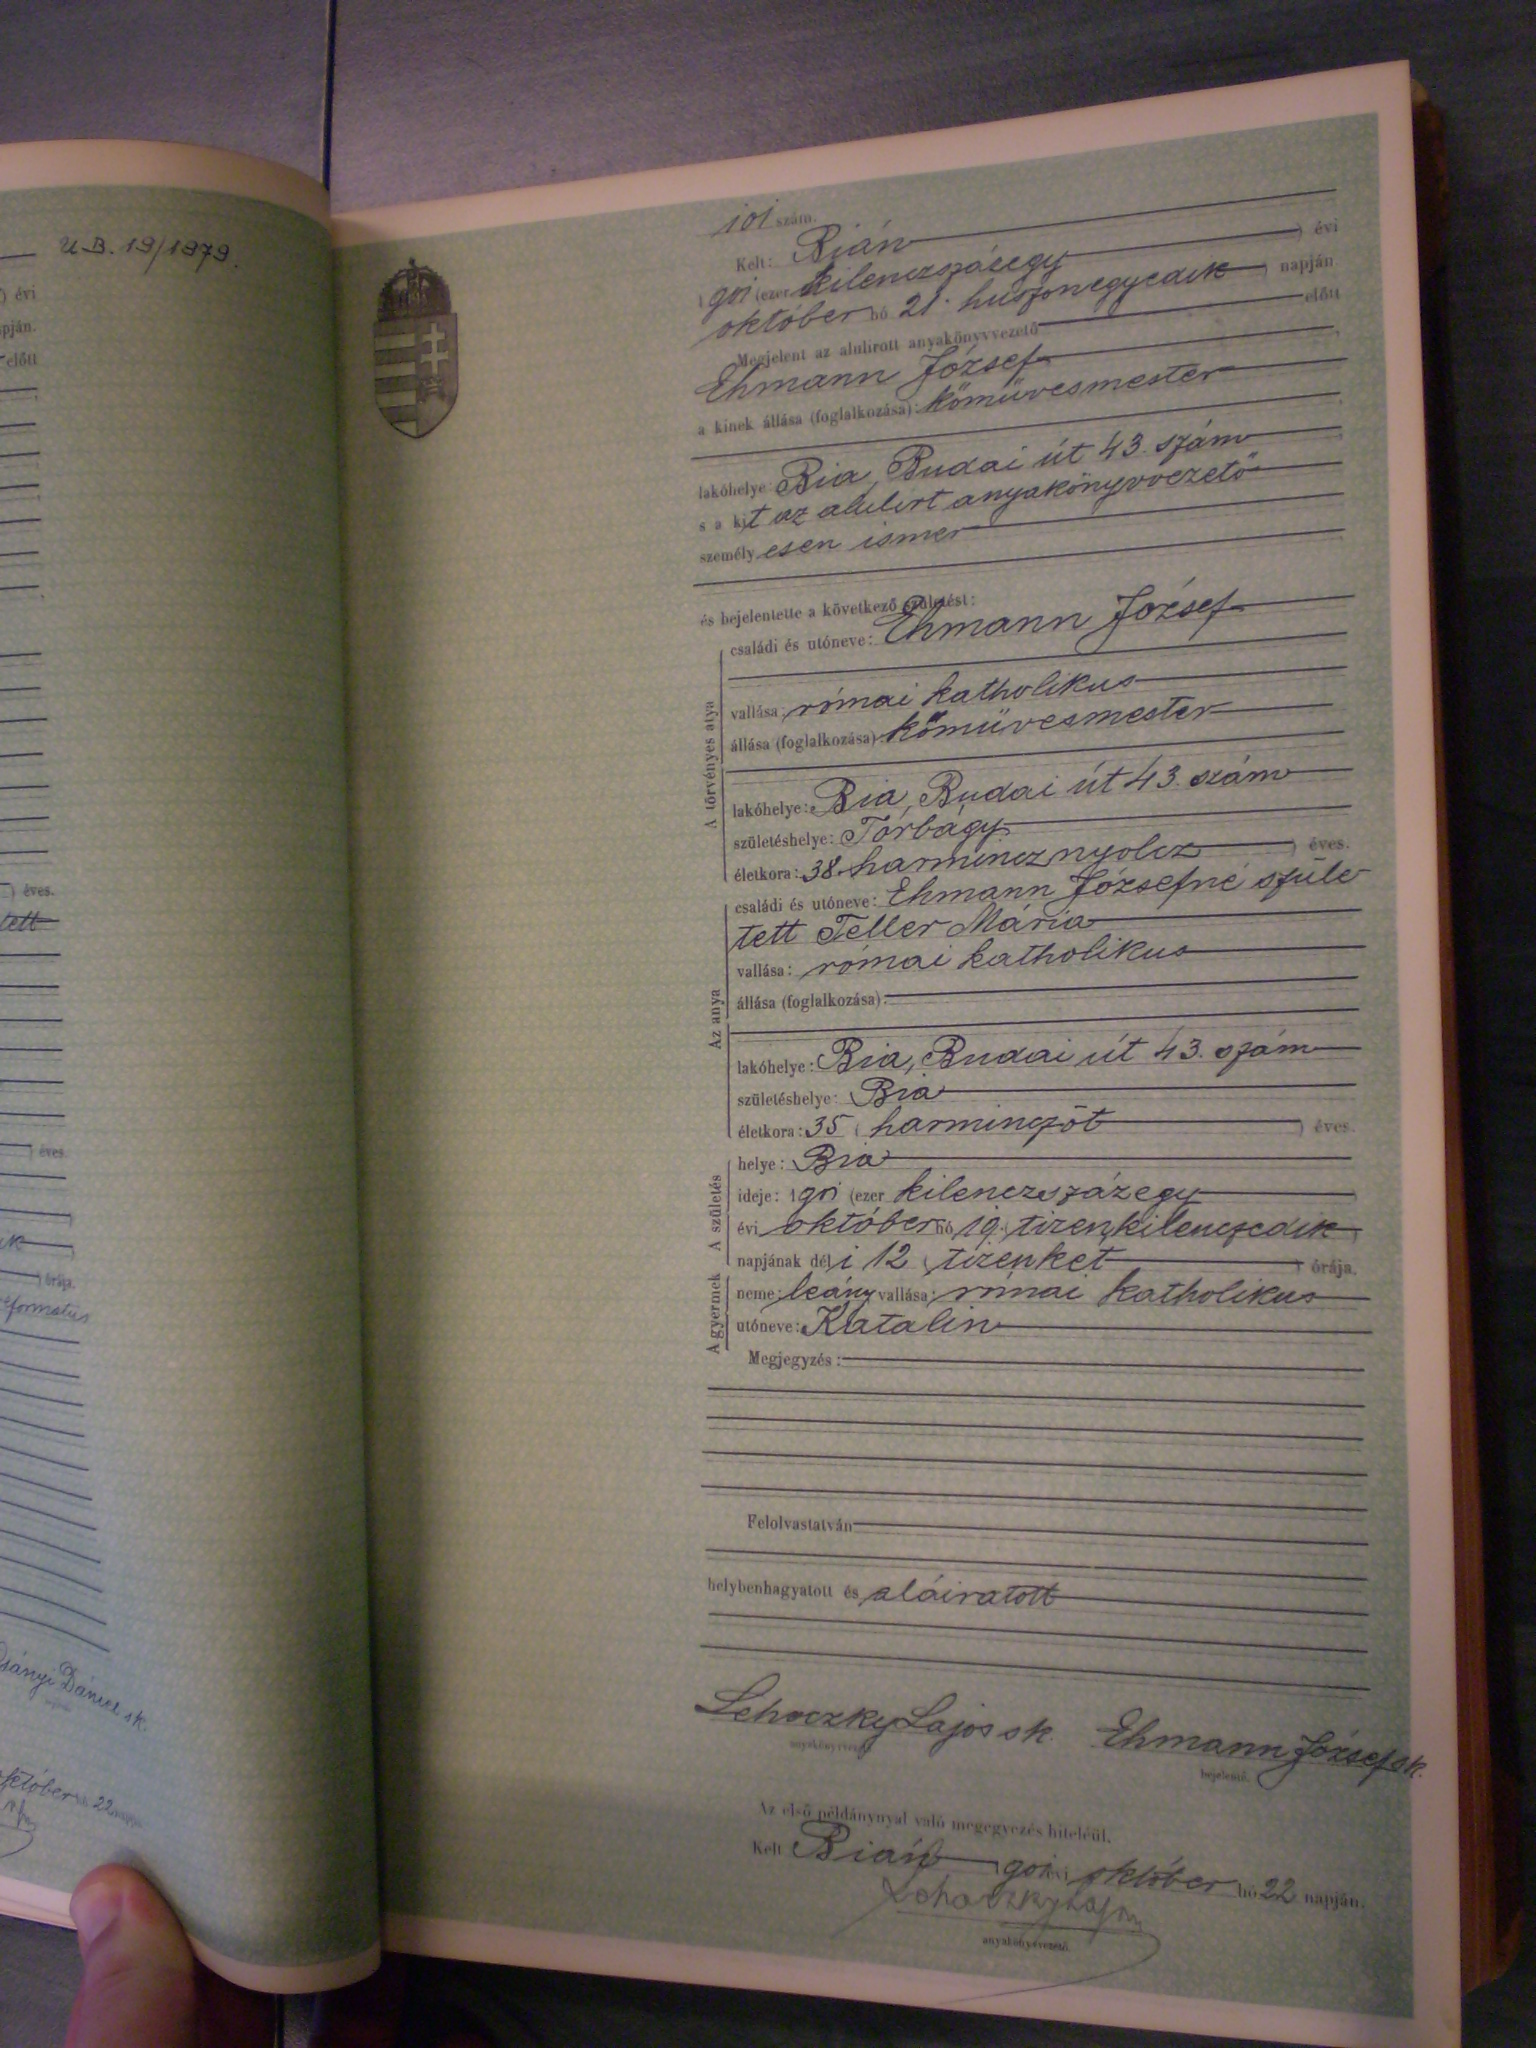 U.B. 19/1979.
) évi
pján.
előtt
) éves.
tett
) éves.
) órája.
reformatus
Dániel sk.
október hó 22
101 szám.
Kelt: Bián ) évi
1901 (ezer kilenczszázegy ) napján
október hó 21. huszonegyedik előtt
Megjelent az alulirott anyakönyvvezető
Ehmann József
a kinek állása (foglalkozása): kőmüvesmester
lakóhelye Bia, Budai út 43. szám
s a kit az alulirt anyakönyvvezető
személyesen ismer
és bejelentette a következő születést:
A törvényes atya
családi és utóneve: Ehmann József
vallása: római katholikus
állása (foglalkozása): kőmüvesmester
lakóhelye: Bia, Budai út 43. szám
születéshelye: Torbágy
életkora: 38. harmincznyolcz ) éves.
Az anya
családi és utóneve: Ehmann Józsefné szüle
tett Teller Mária
vallása: római katholikus
állása (foglalkozása):
lakóhelye: Bia, Budai út 43. szám
születéshelye: Bia
életkora: 35 ( harminczöt ) éves.
A születés
helye: Bia
ideje: 1901 (ezer kilenczszázegy )
évi október hó 19. tizenkilenczedik )
napjának déli 12 ( tizenkét ) órája.
A gyermek
neme: leány vallása: római katholikus
utóneve: Katalin
Megjegyzés:
Felolvastatván
helybenhagyatott és aláiratott
Lehoczky Lajos sk. Ehmann József sk.
anyakönyvvezető. bejelentő.
Az első példánynyal való megegyezés hiteléül.
Kelt Bián 1901 október hó 22 napján.
Lehoczky Lajos
anyakönyvvezető.